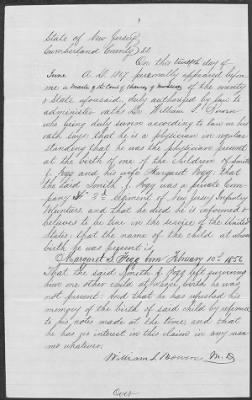 State of New Jersey
Cumberland County } SS.
On this twelfth day of
June A. D. 1867 personally appeared before
me a master of the Court of Chancery of New Jersey of the county
& State aforesaid, duly authorized by law to
administer oaths Dr William S. Bowen
who being duly sworn according to law on his
oath says that he is a physician in regular
standing that he was the physician present
at the birth of one of the children of Smith
J. Fogg and his wife Margaret Fogg; that
the said Smith J. Fogg was a private Com
pany H 3d Regiment of New Jersey Infantry
Volunteers and that he died he is informed &
believes to be true in the service of the United
States. That the name of the child at whose
birth he was present is,
Margaret S. Fogg born February 10th 1856
That the said Smith J. Fogg left surviving
him one other child at whose birth he was
not present. And that he has refreshed his
memory of the birth of said child by reference
to his notes made at the time; and that
he has no interest in this claim in any man
ner whatever.
William S. Bowen M. D.
Over